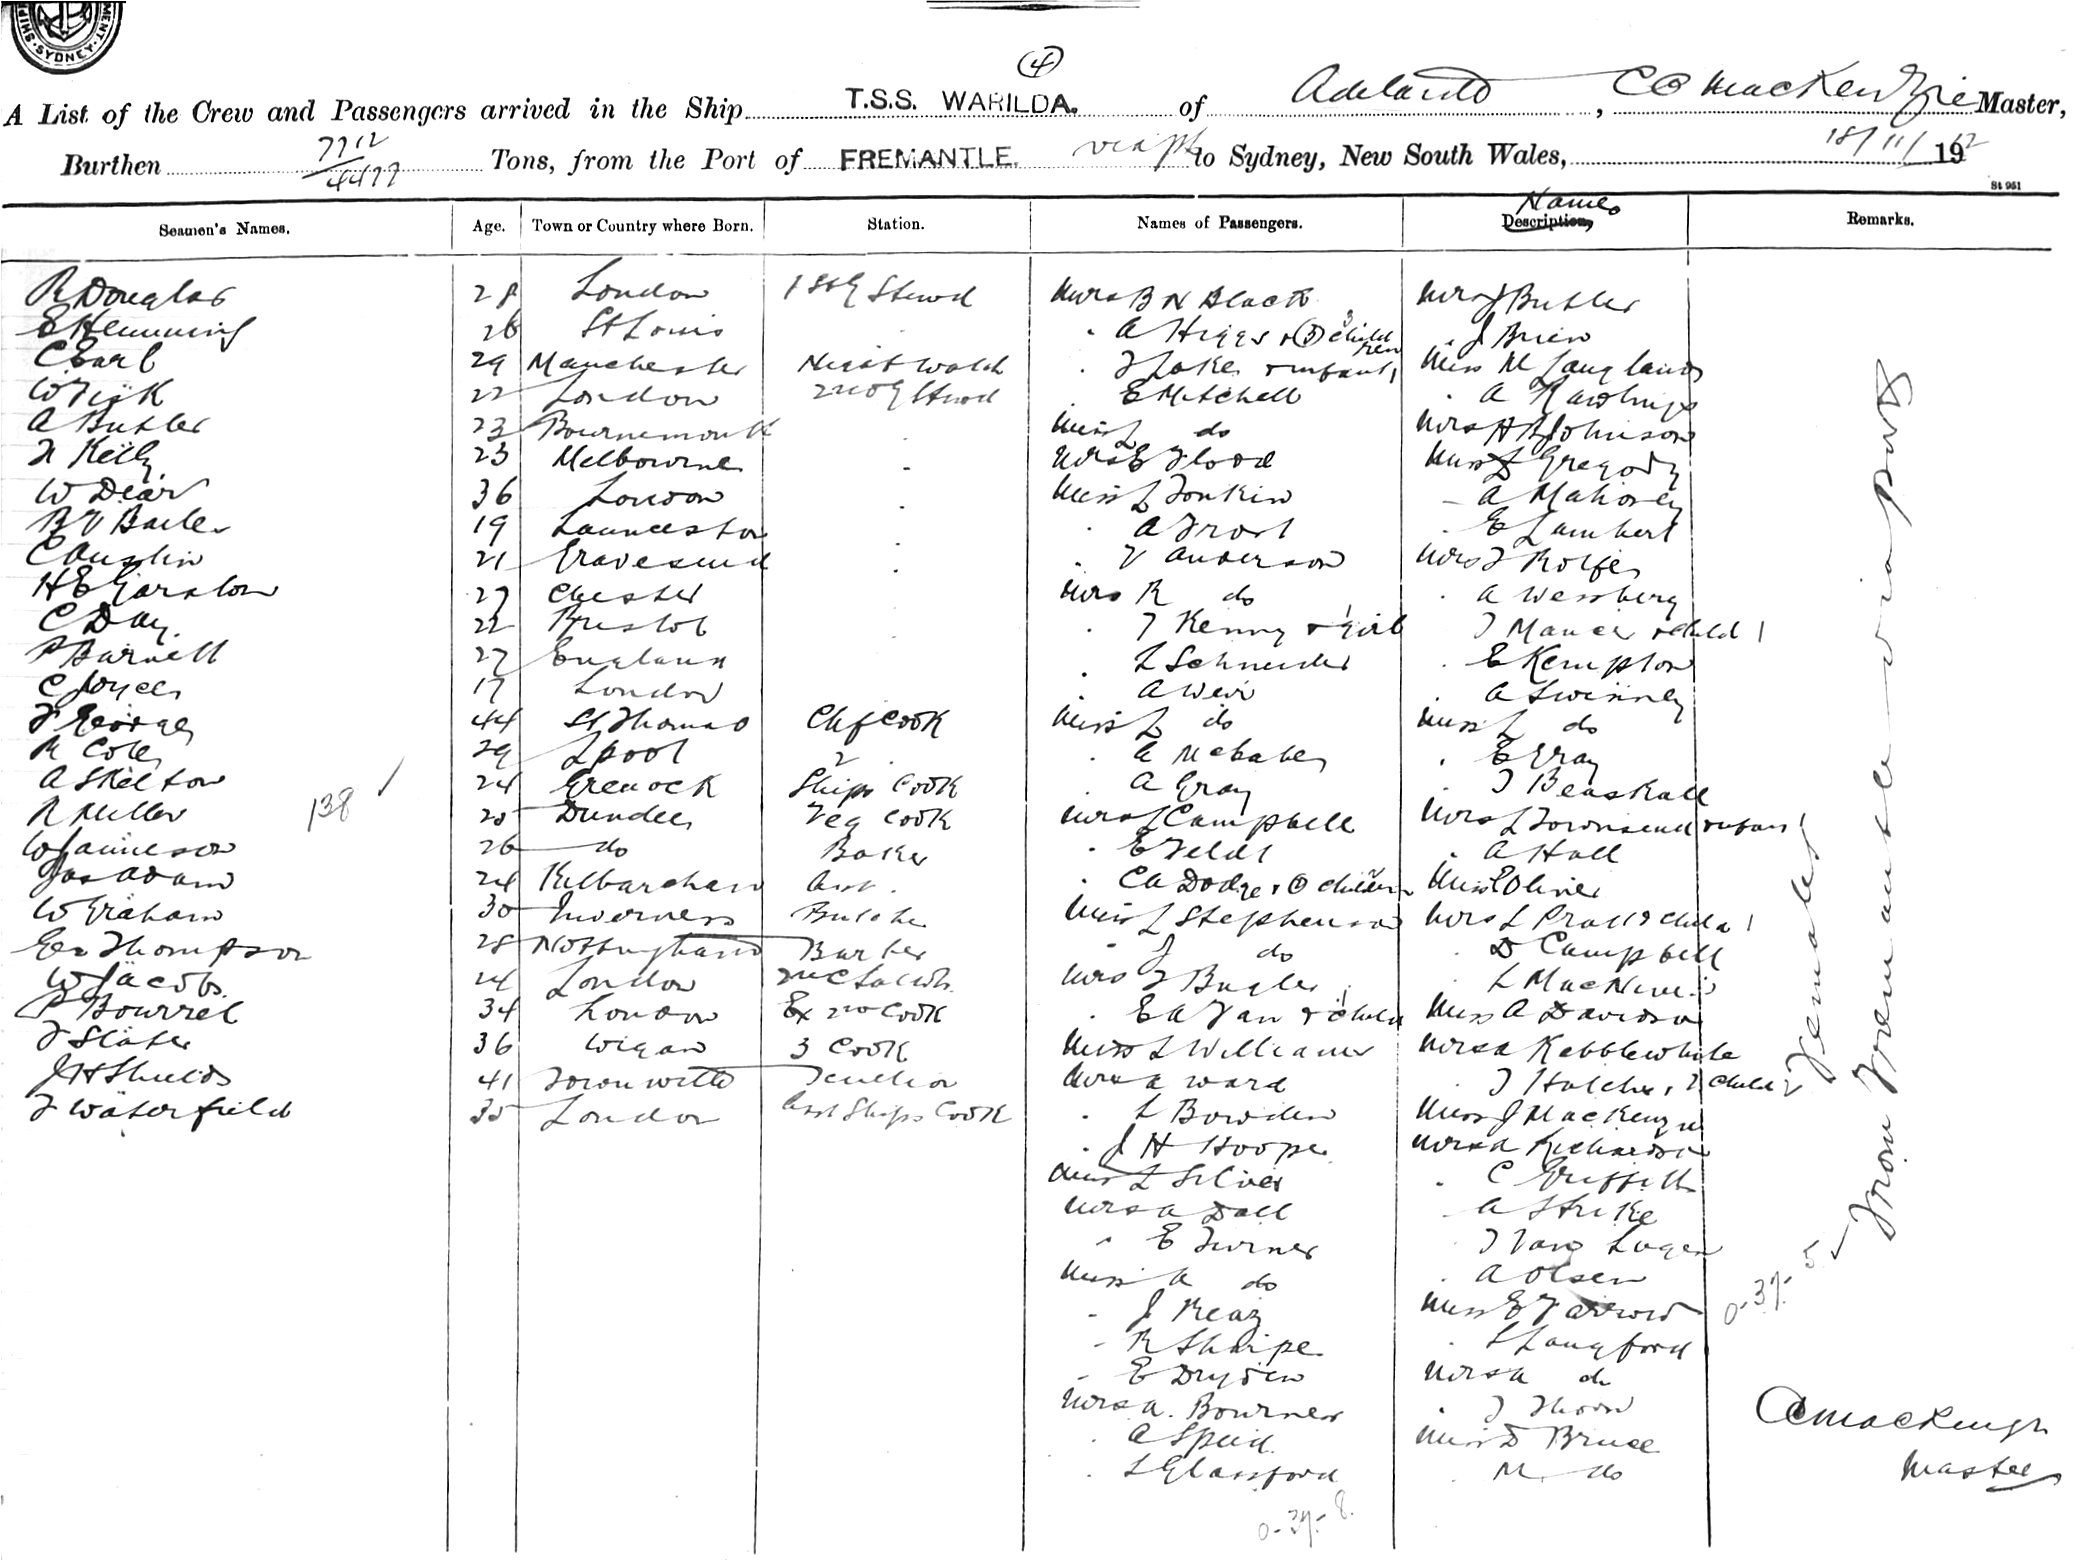 SYDNEY
4
A List of the Crew and Passengers arrived in the Ship T.S.S. WARILDA. of Adelaide, C O MacKenzie Master,
Burthen 7712/4477 Tons, from the Port of FREMANTLE. via pts to Sydney, New South Wales, 18/11/ 1912
St 951
Seamen's Names. Age. Town or Country where Born. Station. Names of Passengers. Description, Names Remarks.
R Douglas 28 London Stewd Mrs B N Black Mrs J Butler
E Hemming 26 St Louis " A Higgs & (3) children 3 " J Brien
C Earl 29 Manchester Night Watch " infant 1 Miss M Langlands
W 22 London Stewd " E Mitchell " A Rawlings
A Butler 23 Bournemouth " Miss L do Mrs H Johnson
F Kelly 23 Melbourne " Mrs E Flood Miss L Gregory
W Dear 36 London " Miss L Tonkin " A Mahoney
19 Launceston " A Frost " E Lambert
C Austin 21 Gravesend " V Anderson Mrs F Rolfe
H E Garston 27 Chester " Mrs R do " A Wessberg
C Day 22 Bristol " " T Kenny & girl 1 child 1
P Barnett 27 England " L Schneider " E Kempton
C Joyce 17 London " A Weir " A Swinney
F George 44 St Thomas Chf Cook Miss L do Miss L do
R Cole 29 Lpool 2 " " A McCabe " E Gray
A Skelton 24 Greenock Ships Cook " A Gray
R Miller 25 Dundee Veg Cook Mrs L Campbell Mrs L Townsend & infant 1
138
W Jamieson 26 do Baker " " A Hall
Jas Adam 24 Kilbarchan Asst. " C A Dodge & children Miss E Oliver
W Graham 30 Inverness Butcher Miss L Stephenson Mrs L Pratt & child 1
Geo Thompson 28 Nottingham Barber " J do " D Campbell
W Jacobs 24 London Mrs F " L
P Bourrel 34 London Ex 2nd Cook " & child 1 Miss A Davidson
F Slater 36 Wigan 3 Cook Miss L Williams Mrs A Kebblewhite
J H Shields 41 Mrs A Ward child 2
F Waterfield 35 London Asst Ships Cook " L Bowden Miss J MacKenzie
" J H Hooper Mrs A Richardson
Miss L Silver " C Griffith
Mrs A Dall " A Strike
" E Turner
Miss A do " A Olsen
" J Miss E Farrow
" R Sharpe " L Langford
" E Dryden Mrs A do
Mrs A. Bourner
" A Speed Miss D Bruce
" L Glassford " M. do
0-37-8
0-37-5
Females
From Fremantle via ports
C O MacKenzie
Master